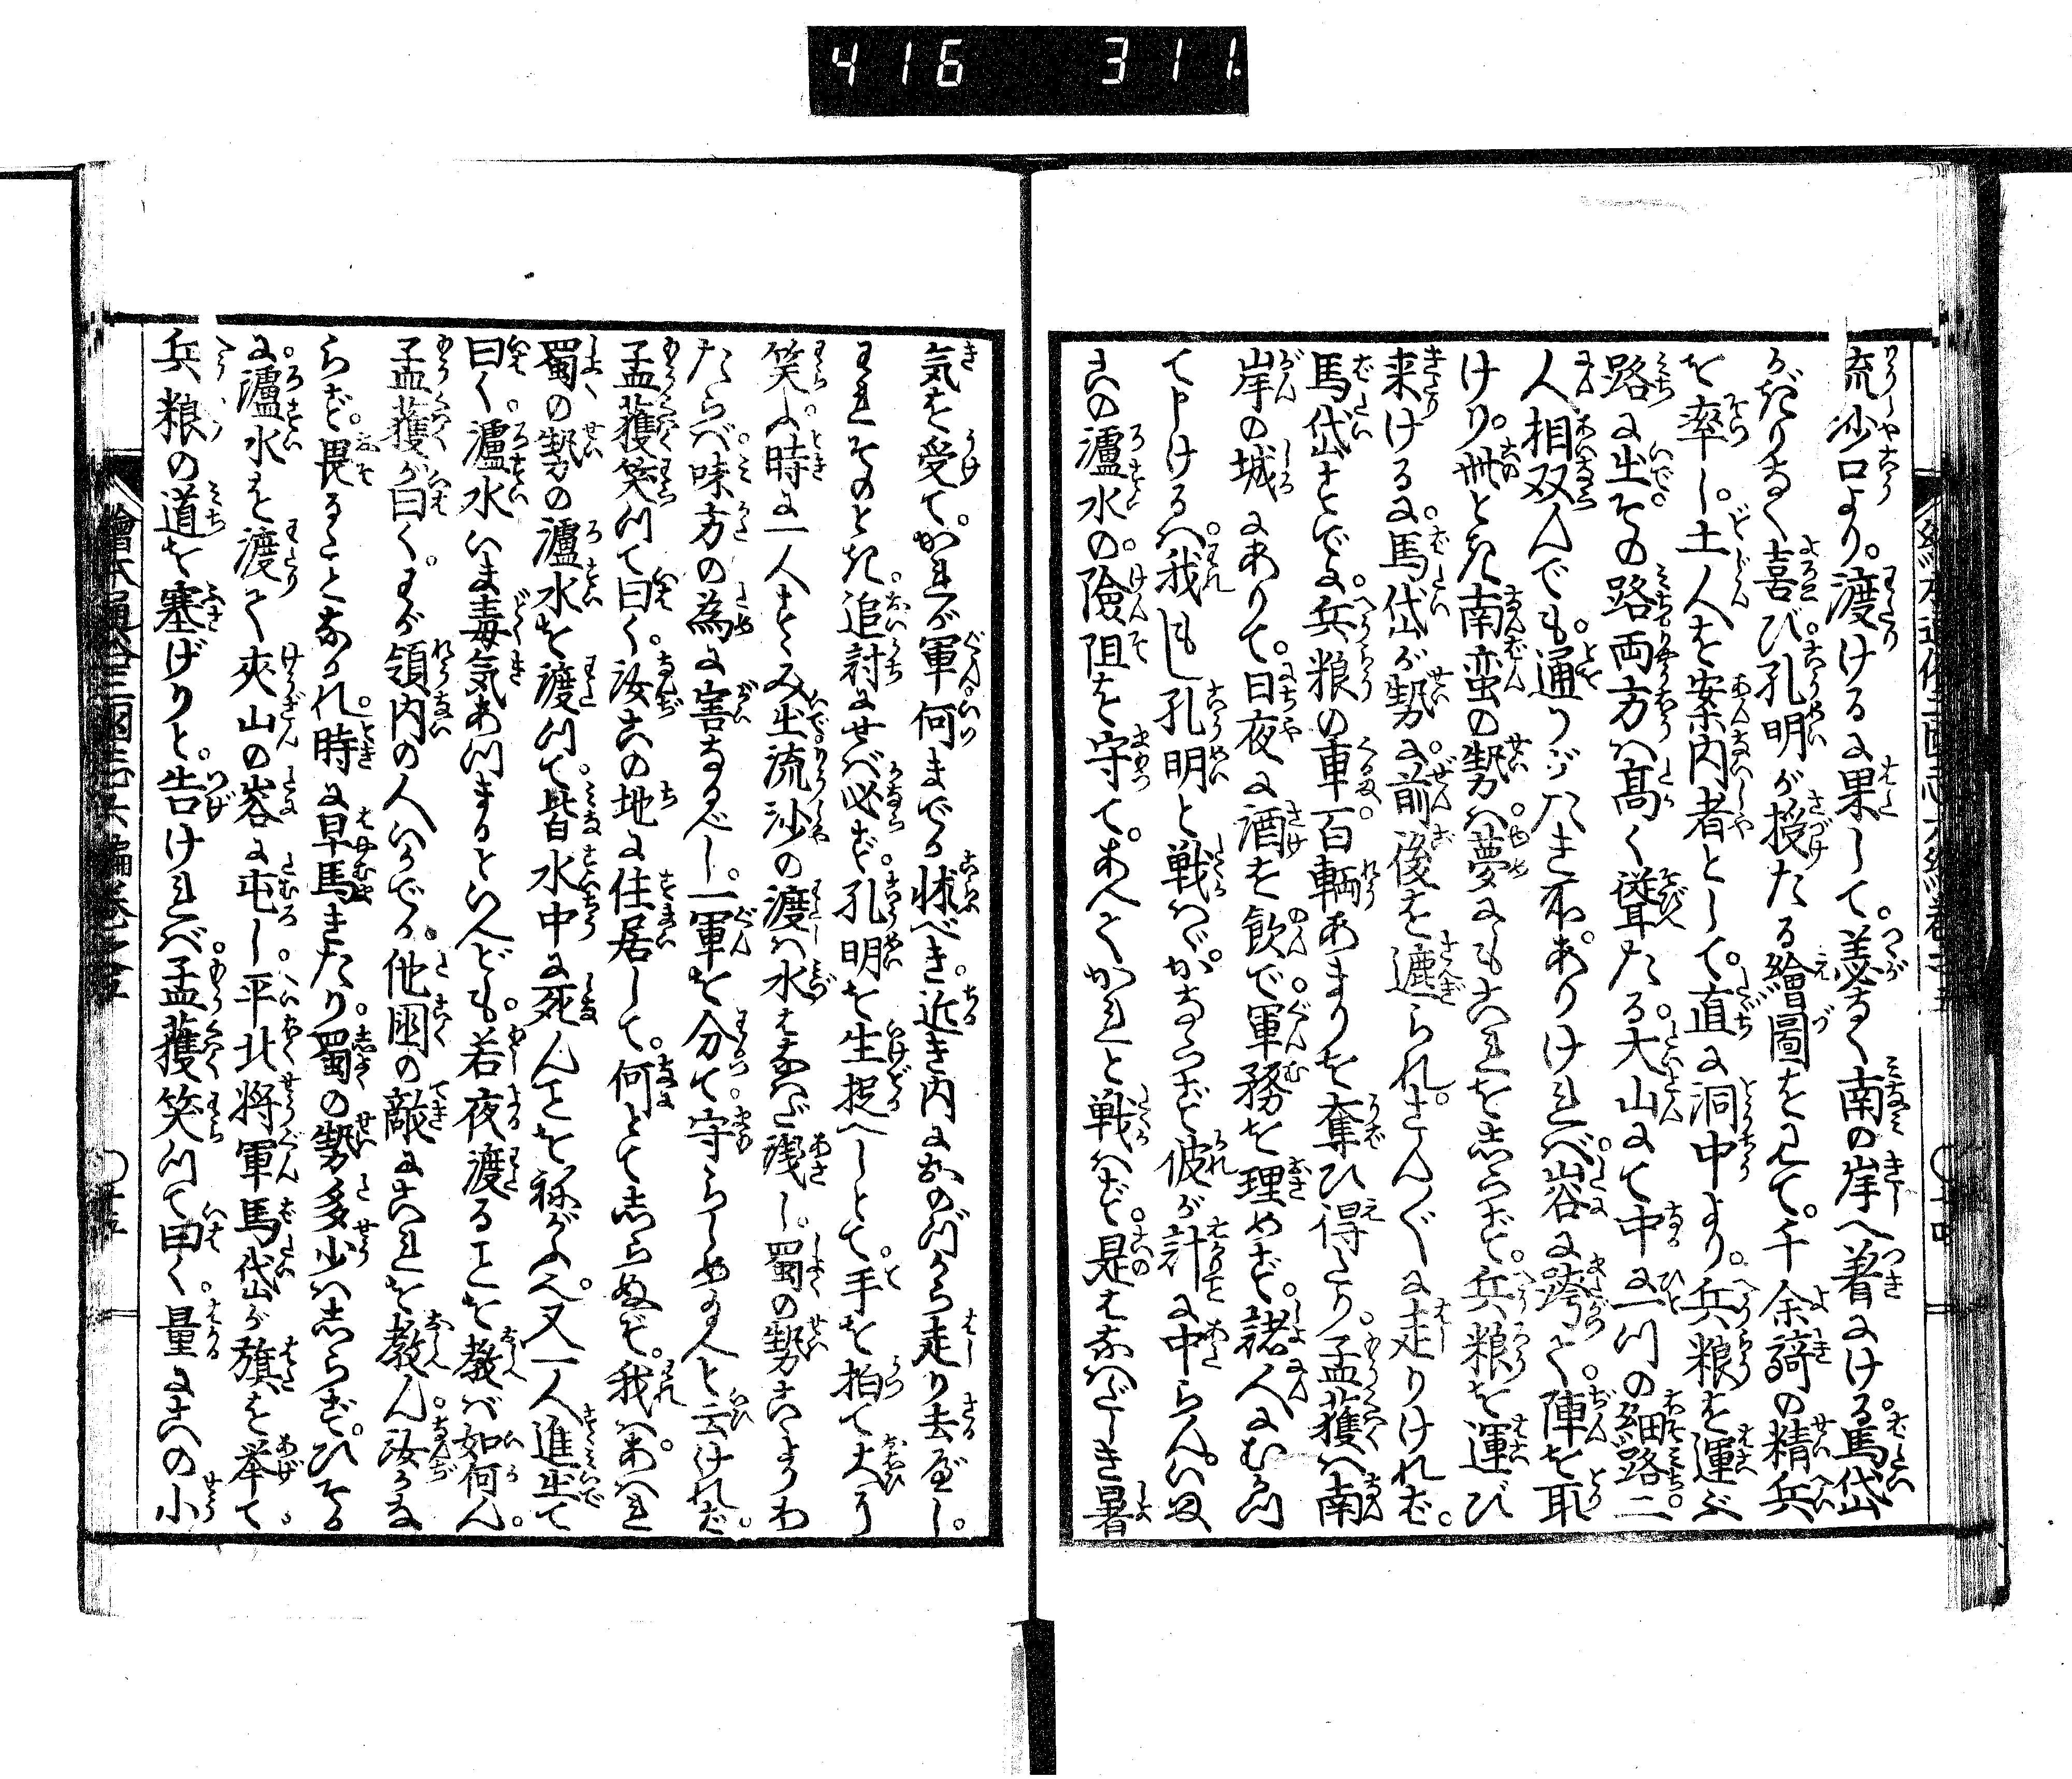 416 311.
流沙口より。渡ける に果して。恙なく南の岸へ着にける。馬岱
かぎりなく喜び。孔明が授たる繪圖をみて。千余騎の精兵
を率し。土人を案内者として。直に洞中より。兵粮を運ぶ
路に出。その路両方は高く聳たる。大山にて中に一ツの細路。二
人相双んでも。通りがたき所ありければ。谷に跨て。陣を取
けり。此とき南蛮の勢は。夢にもこれをしらず。兵粮を運び
来けるに。馬岱が勢に。前後を遮られ。さん〴〵に走りければ。
馬岱すでに。兵粮の車。百輛あまりを奪ひ得たり。孟獲は南
岸の城にありて。日夜に酒を飲で。軍務を理めず。諸人にむかつ
て申けるは。我もし孔明と戦はゞ。かならず彼が計に中らん。いま
此の瀘水の。険阻を守て。あへてかれと戦はず。是をなへだしき暑
気を受て。かれが軍何までか怺べき。近き内におのづから走り去べし。
そのとき。追討にせば必ず。孔明を生捉べしとて。手を拍て大に
笑ふ。時に一人すゝみ出。流沙の渡は水はなはだ浅し。蜀の勢こゝよりわ
たらば。味方の為に害なるべし。一軍を分て。守らしめ給へと云ければ。
孟獲笑つて曰く。汝此の地に住居して。何とてしらぬぞ。我はあはれ
蜀の勢の瀘水を渡つて。皆水中に死んことを祢がふ。又一人進出て
曰く。瀘水いま毒気あつまるといへども。若夜渡ることを教ば如何ん。
孟獲が曰く。わが領内の人いかでか。他国の敵にこれを教ん。汝かな
らず。畏ることなかれ。時に早馬きたり。蜀の勢多少はしらず。ひそか
に。瀘水を渡て夾山の谷に屯し。平北将軍馬岱が旗を挙て
兵粮の道を塞げりと。告ければ。孟獲笑つて曰く。量にこの小